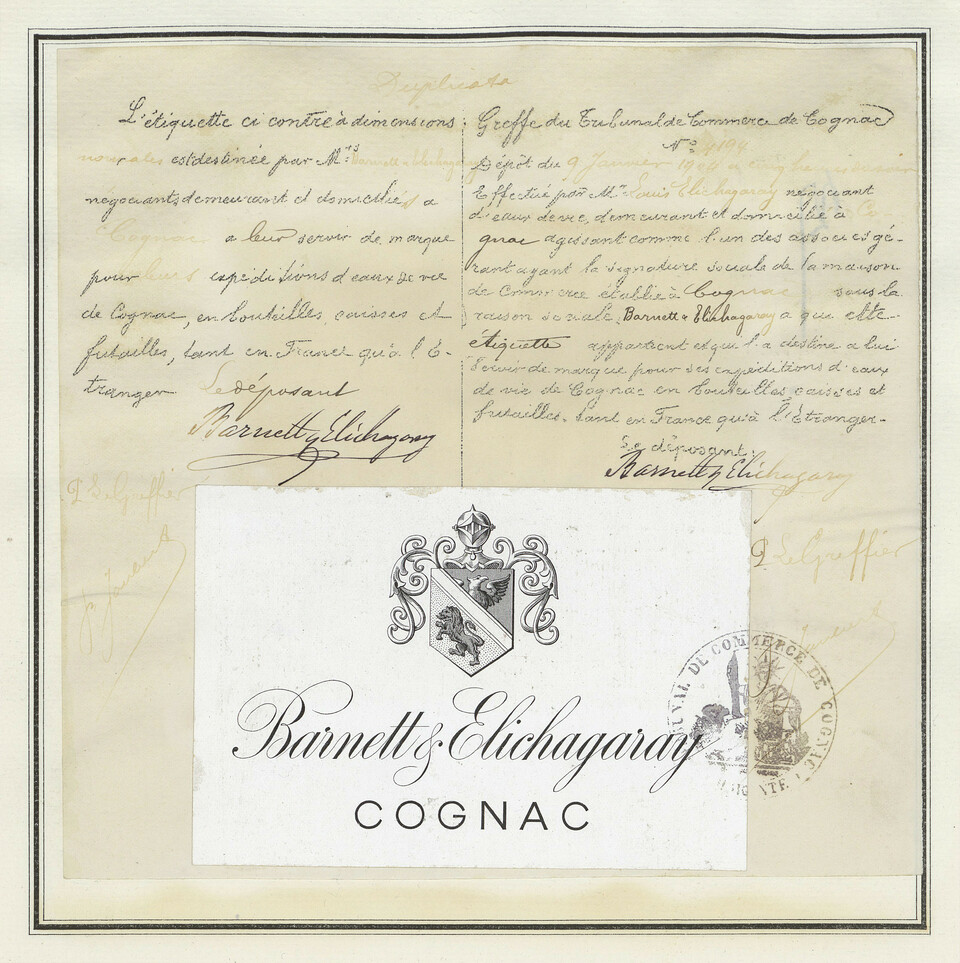 Duplicata
L'étiquette ci contre à dimensions
normales est destinée par M.rs Barnett & Elichagaray
négociants demeurant et domiciliés à
Cognac à leur servir de marque
pour leurs expéditions d'eaux de vie
de Cognac, en bouteilles, caisses et
futailles, tant en France qu'à l'É-
tranger. Le déposant
Barnett & Elichagaray
P. Le Greffier
Greffe du Tribunal de Commerce de Cognac
N° 4194
Dépôt du 9 Janvier
Effectué par M.r Louis Elichagaray négociant
d'eaux de vie, demeurant et domicilié à Co-
gnac agissant comme l'un des associés gé-
rant ayant la signature sociale de la maison
de Commerce établie à Cognac sous la
raison sociale, Barnett & Elichagaray a qui cette
étiquette appartient et qui l'a destine a lui
servir de marque pour ses expéditions d'eaux
de vie de Cognac en bouteilles, caisses et
futailles, tant en France qu'à l'Étranger-
Le déposant,
Barnett & Elichagaray
P. Le Greffier
Barnett & Elichagaray
COGNAC
DE COMMERCE DE COGNAC